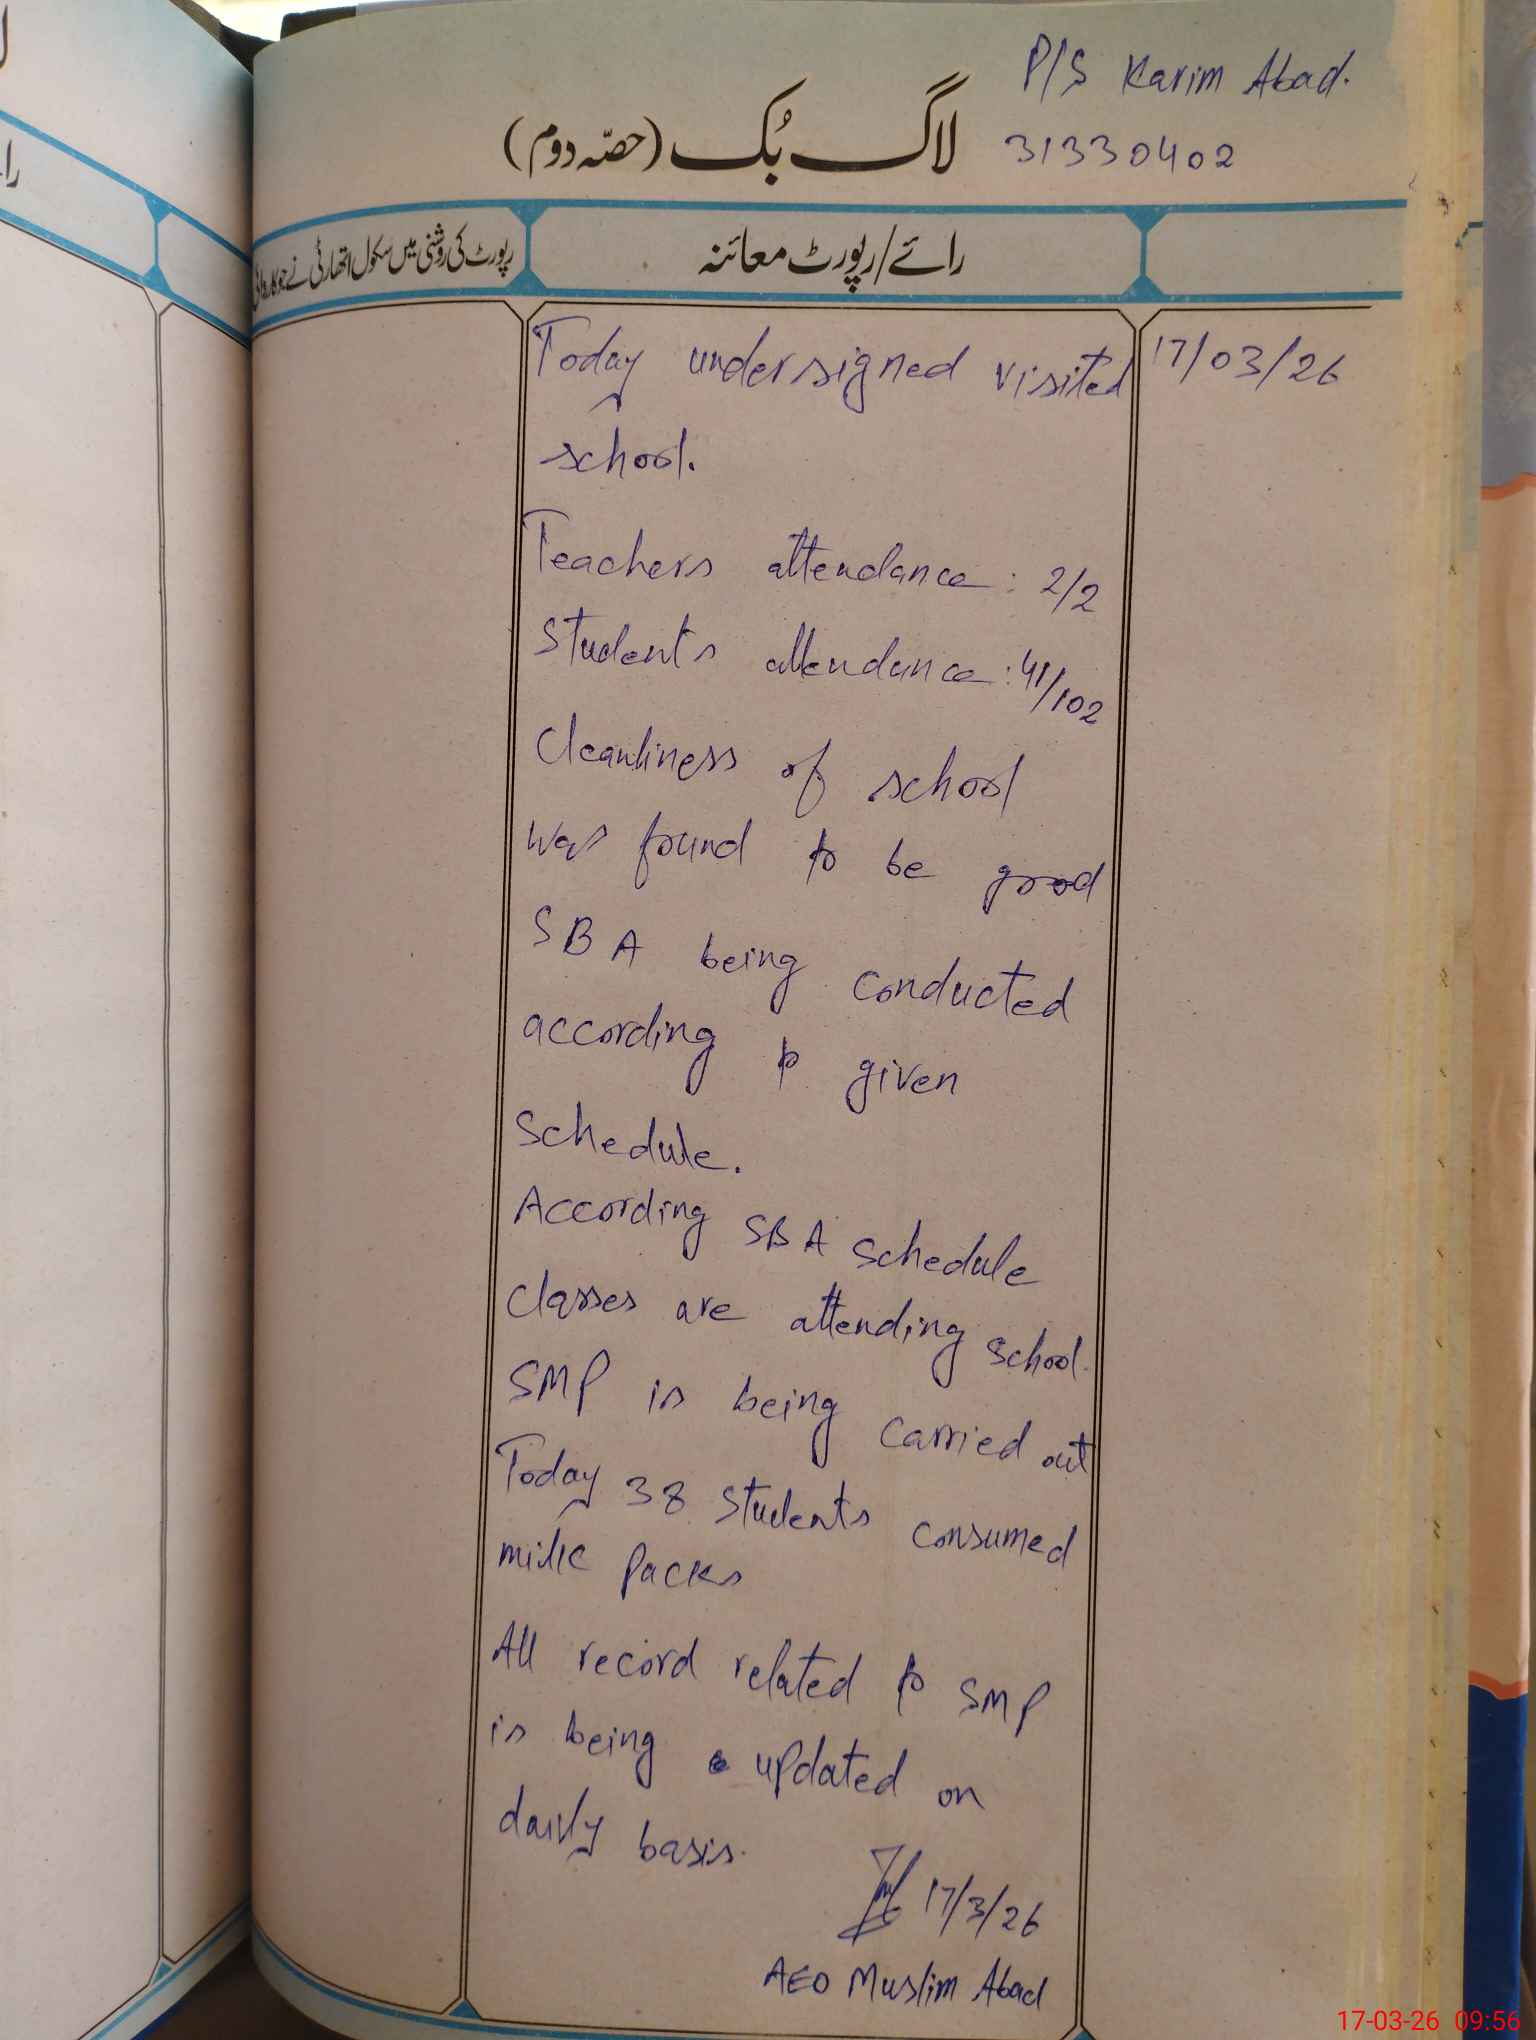 P/S Karim Abad.
31330402
لاگ بُک (حصّہ دوم)
رائے/رپورٹ معائنہ
رپورٹ کی روشنی میں سکول اتھارٹی نے جو کاروائی
17/03/26
Today undersigned visited
school.
Teachers attendance: 2/2
Students attendance: 41/102
Cleanliness of school
was found to be good
SBA being conducted
according to given
Schedule.
According SBA schedule
classes are attending school.
SMP is being carried out
Today 38 students consumed
milk packs
All record related to SMP
is being updated on
daily basis.
17/3/26
AEO Muslim Abad
17-03-26 09:56